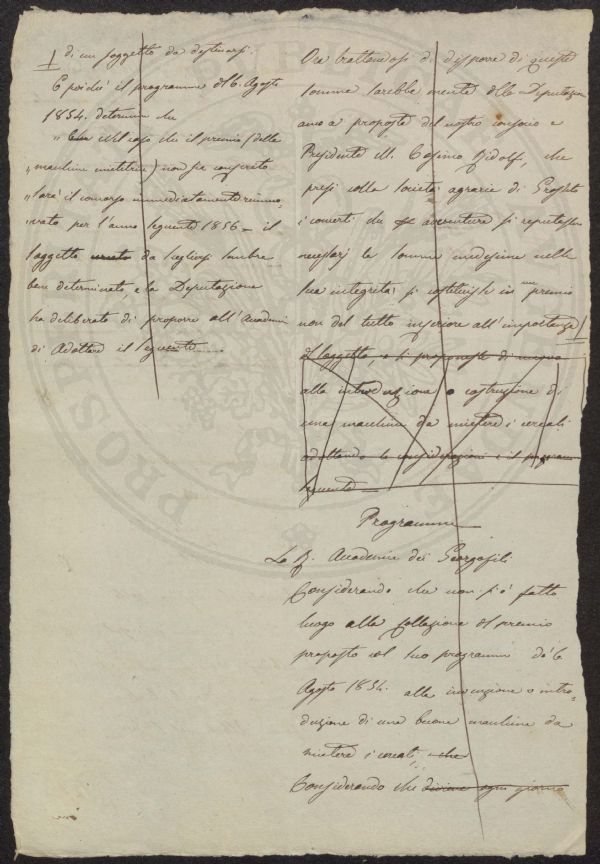 di un soggetto da destinarsi.
E poiché il programma del 6. Agosto
1854. determina che
„ nel caso che il premio (della
„ macchina mietitrice) non sia conferito
„ sarà il concorso immediatamente rinno-
„ vato per l'anno seguente 1856 — il
soggetto da scegliersi sembra
ben determinato, e la Deputazione
ha deliberato di proporre all'Accademia
di adottare il seguente
Ora trattandosi di disporre di queste
somme sarebbe mente della Deputazione
che
Presidente M. Cosimo Ridolfi, che
presso la Società agraria di Grosseto
le somme medesime nella
sua integrità si costituisse un premio
non del tutto inferiore all'importanza
del soggetto, e si proponesse di nuovo
alla introduzione o costruzione di
una macchina da mietere i cereali
adottando le considerazioni e il programma
seguente —
Programma
La R. Accademia dei Georgofili
Considerando che non si è fatto
luogo alla collazione del premio
proposto col suo programma de' 6
Agosto 1854. alla invenzione o intro-
duzione di una buona macchina da
mietere i cereali, che
Considerando che diviene ogni giorno